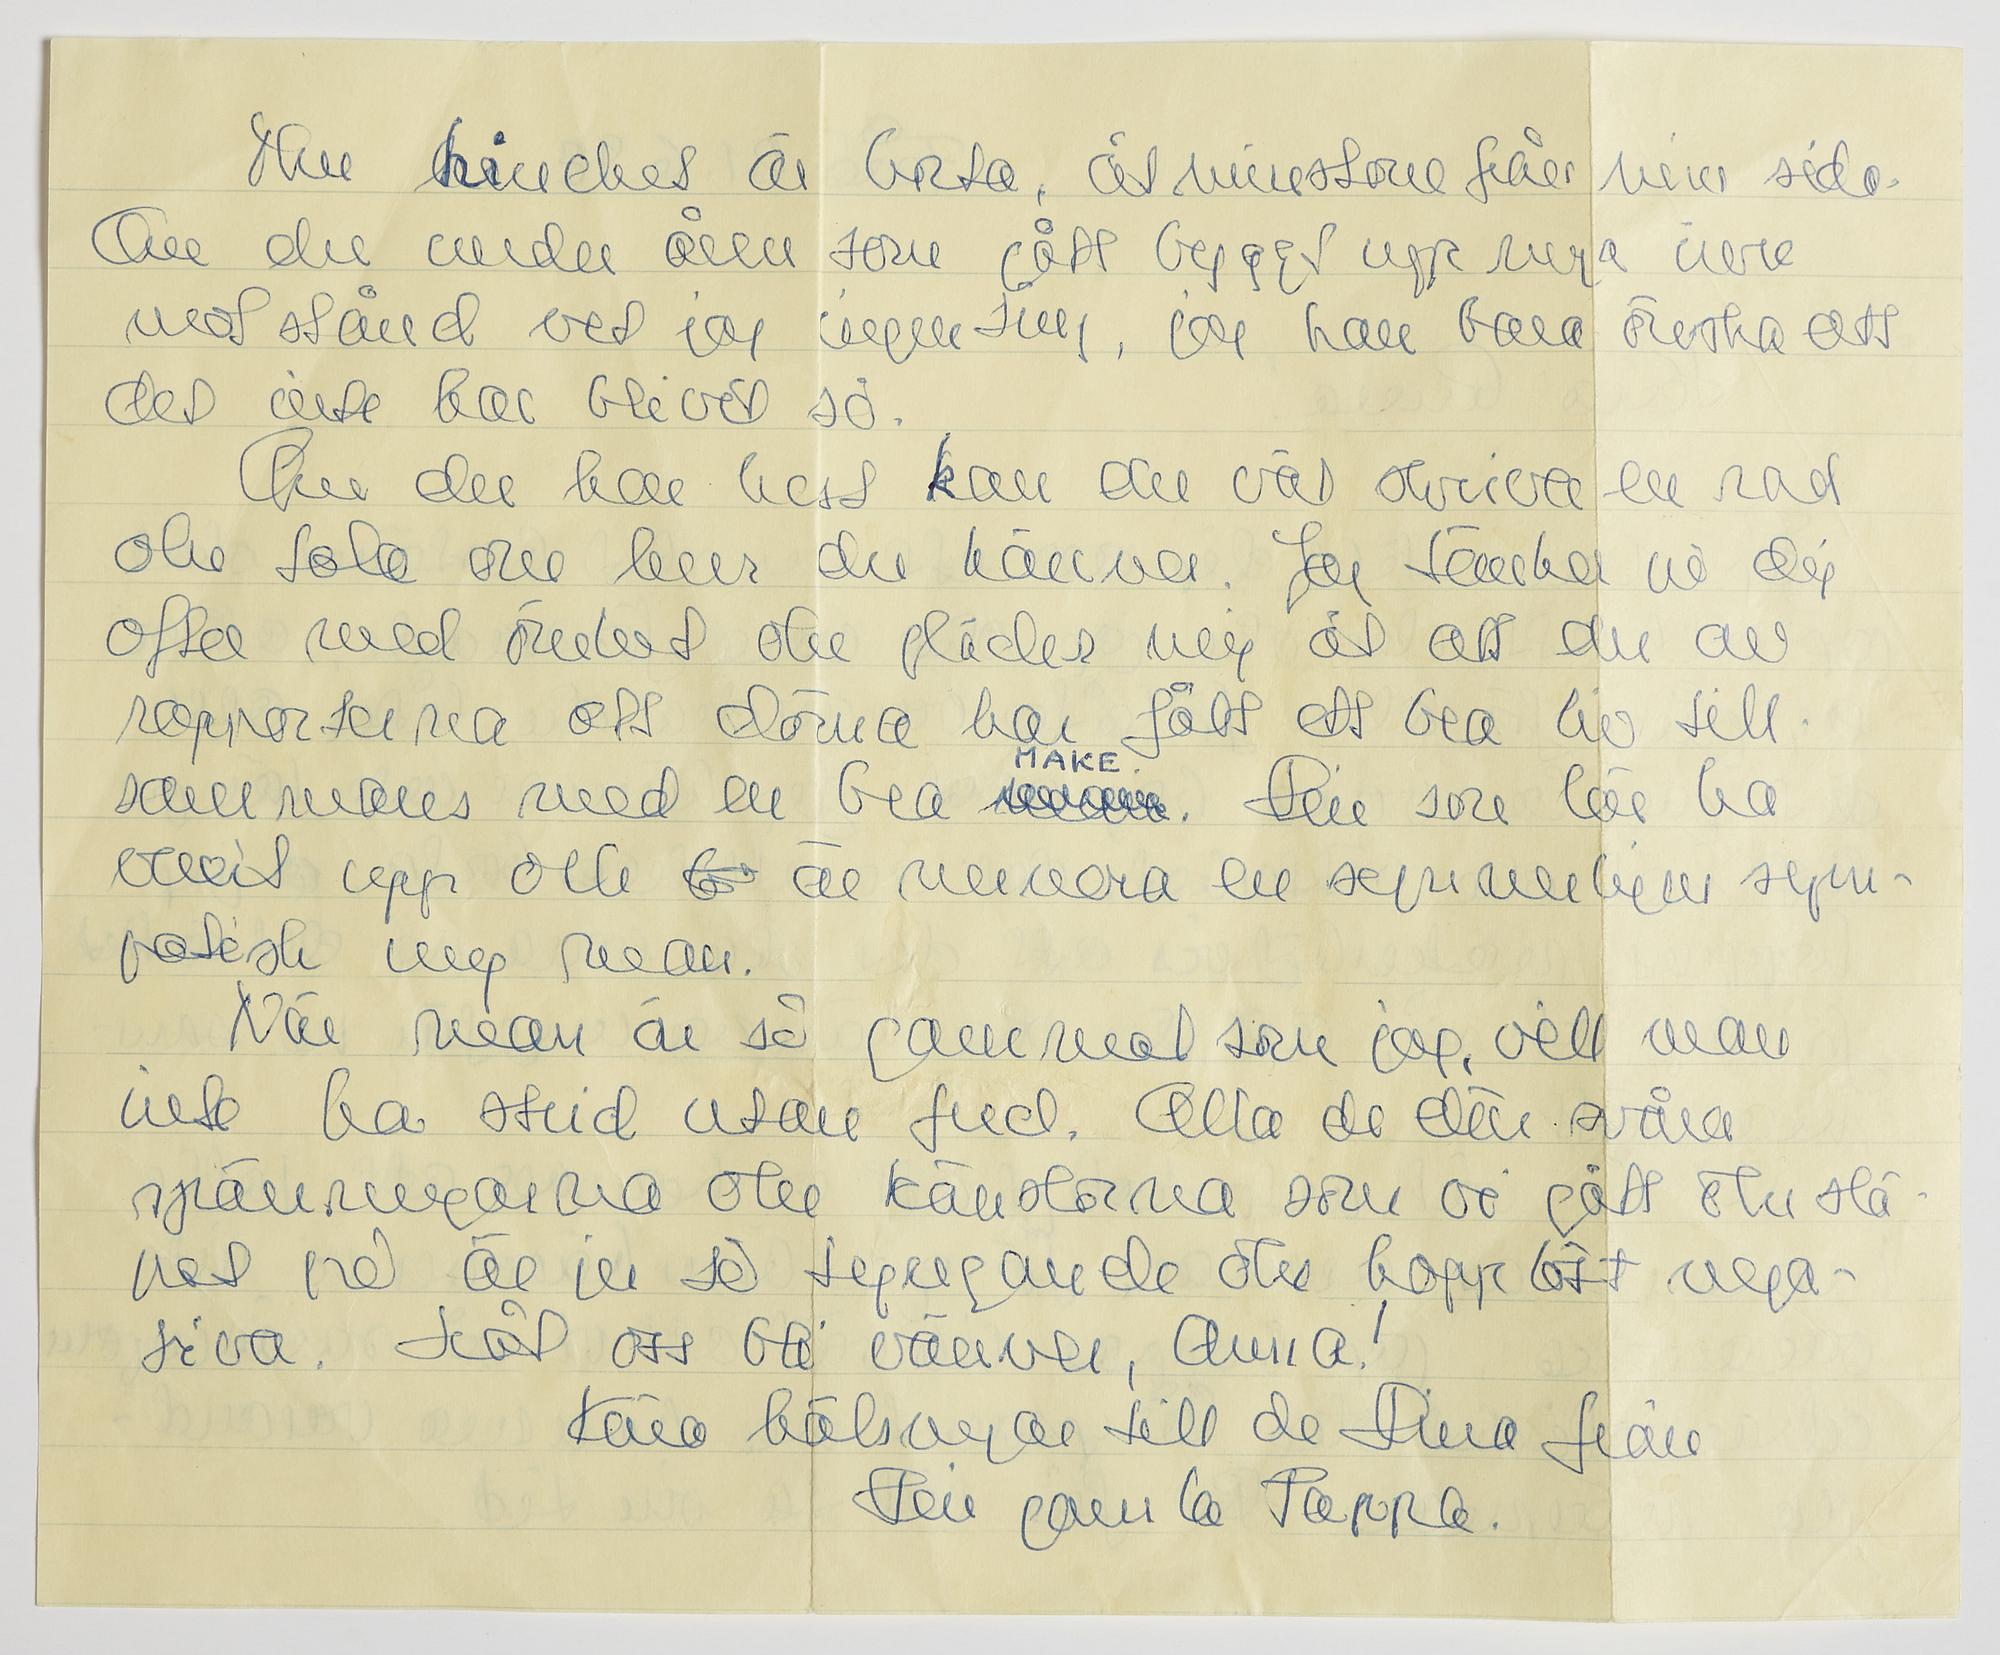 Nu hindret är borta, åtminstone från min sida.
Om du under åren som gått byggt upp nya inre
motstånd vet jag ingenting, jag kan bara önska att
det inte har blivit så.
Om du har lust kan du väl skriva en rad
och tala om hur du känner. Jag tänker på dig
ofta med ömhet och gläder mig åt att du av
rapporterna att döma har fått ett bra liv till-
sammans med en bra MAKE. Din son lär ha
växt upp och är numera en synnerligen sym-
patisk ung man.
När man är så gammal som jag, vill man
inte ha strid utan fred. Alla de där svåra
spänningarna och känslorna som vi gått och slä-
pat på är ju så tyngande och hopplöst nega-
tiva. Låt oss bli vänner, Anna!
Kära hälsningar till de Dina från
Din gamla Pappa.